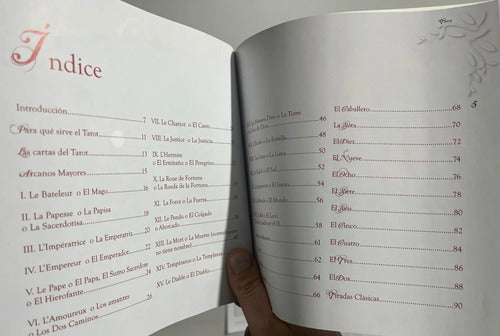 Índice
Introducción 7
Para qué sirve el Tarot 11
Las cartas del Tarot 13
Arcanos Mayores 15
I. Le Bateleur o El Mago 16
II. La Papesse o La Papisa
o La Sacerdotisa 18
III. L'Impératrice o La Emperatriz 20
IV. L'Empereur o El Emperador 22
V. Le Pape o El Papa, El Sumo Sacerdote
o El Hierofante 24
VI. L'Amoureux o Los amantes
o Los Dos Caminos 26
VII. Le Chariot o El Carro
VIII. La Justice o La Justicia
IX. L'Hermite
o El Ermitaño o El Peregrino
X. La Roue de Fortune
o La Rueda de la Fortuna
XI. La Force o La Fuerza
XII. Le Pendu o El Colgado
o Ahorcado
XIII. La Mort o La Muerte (normalmente
no tiene nombre)
XIV. Tempérance o La Templanza
XV. Le Diable o El Diablo
Maison Dieu o La Torre
de Dios 46
o La Estrella 48
Lune o La Luna 50
o El Sol 52
o El Juicio 54
o El Mundo 56
o El Loco 58
64
66
5
El Caballero 68
La Sota 70
El Diez 72
El Nueve 74
El Ocho 76
El Siete 78
El Seis 80
El Cinco 82
El Cuatro 84
El Tres 86
El Dos 88
Tiradas Clásicas 90